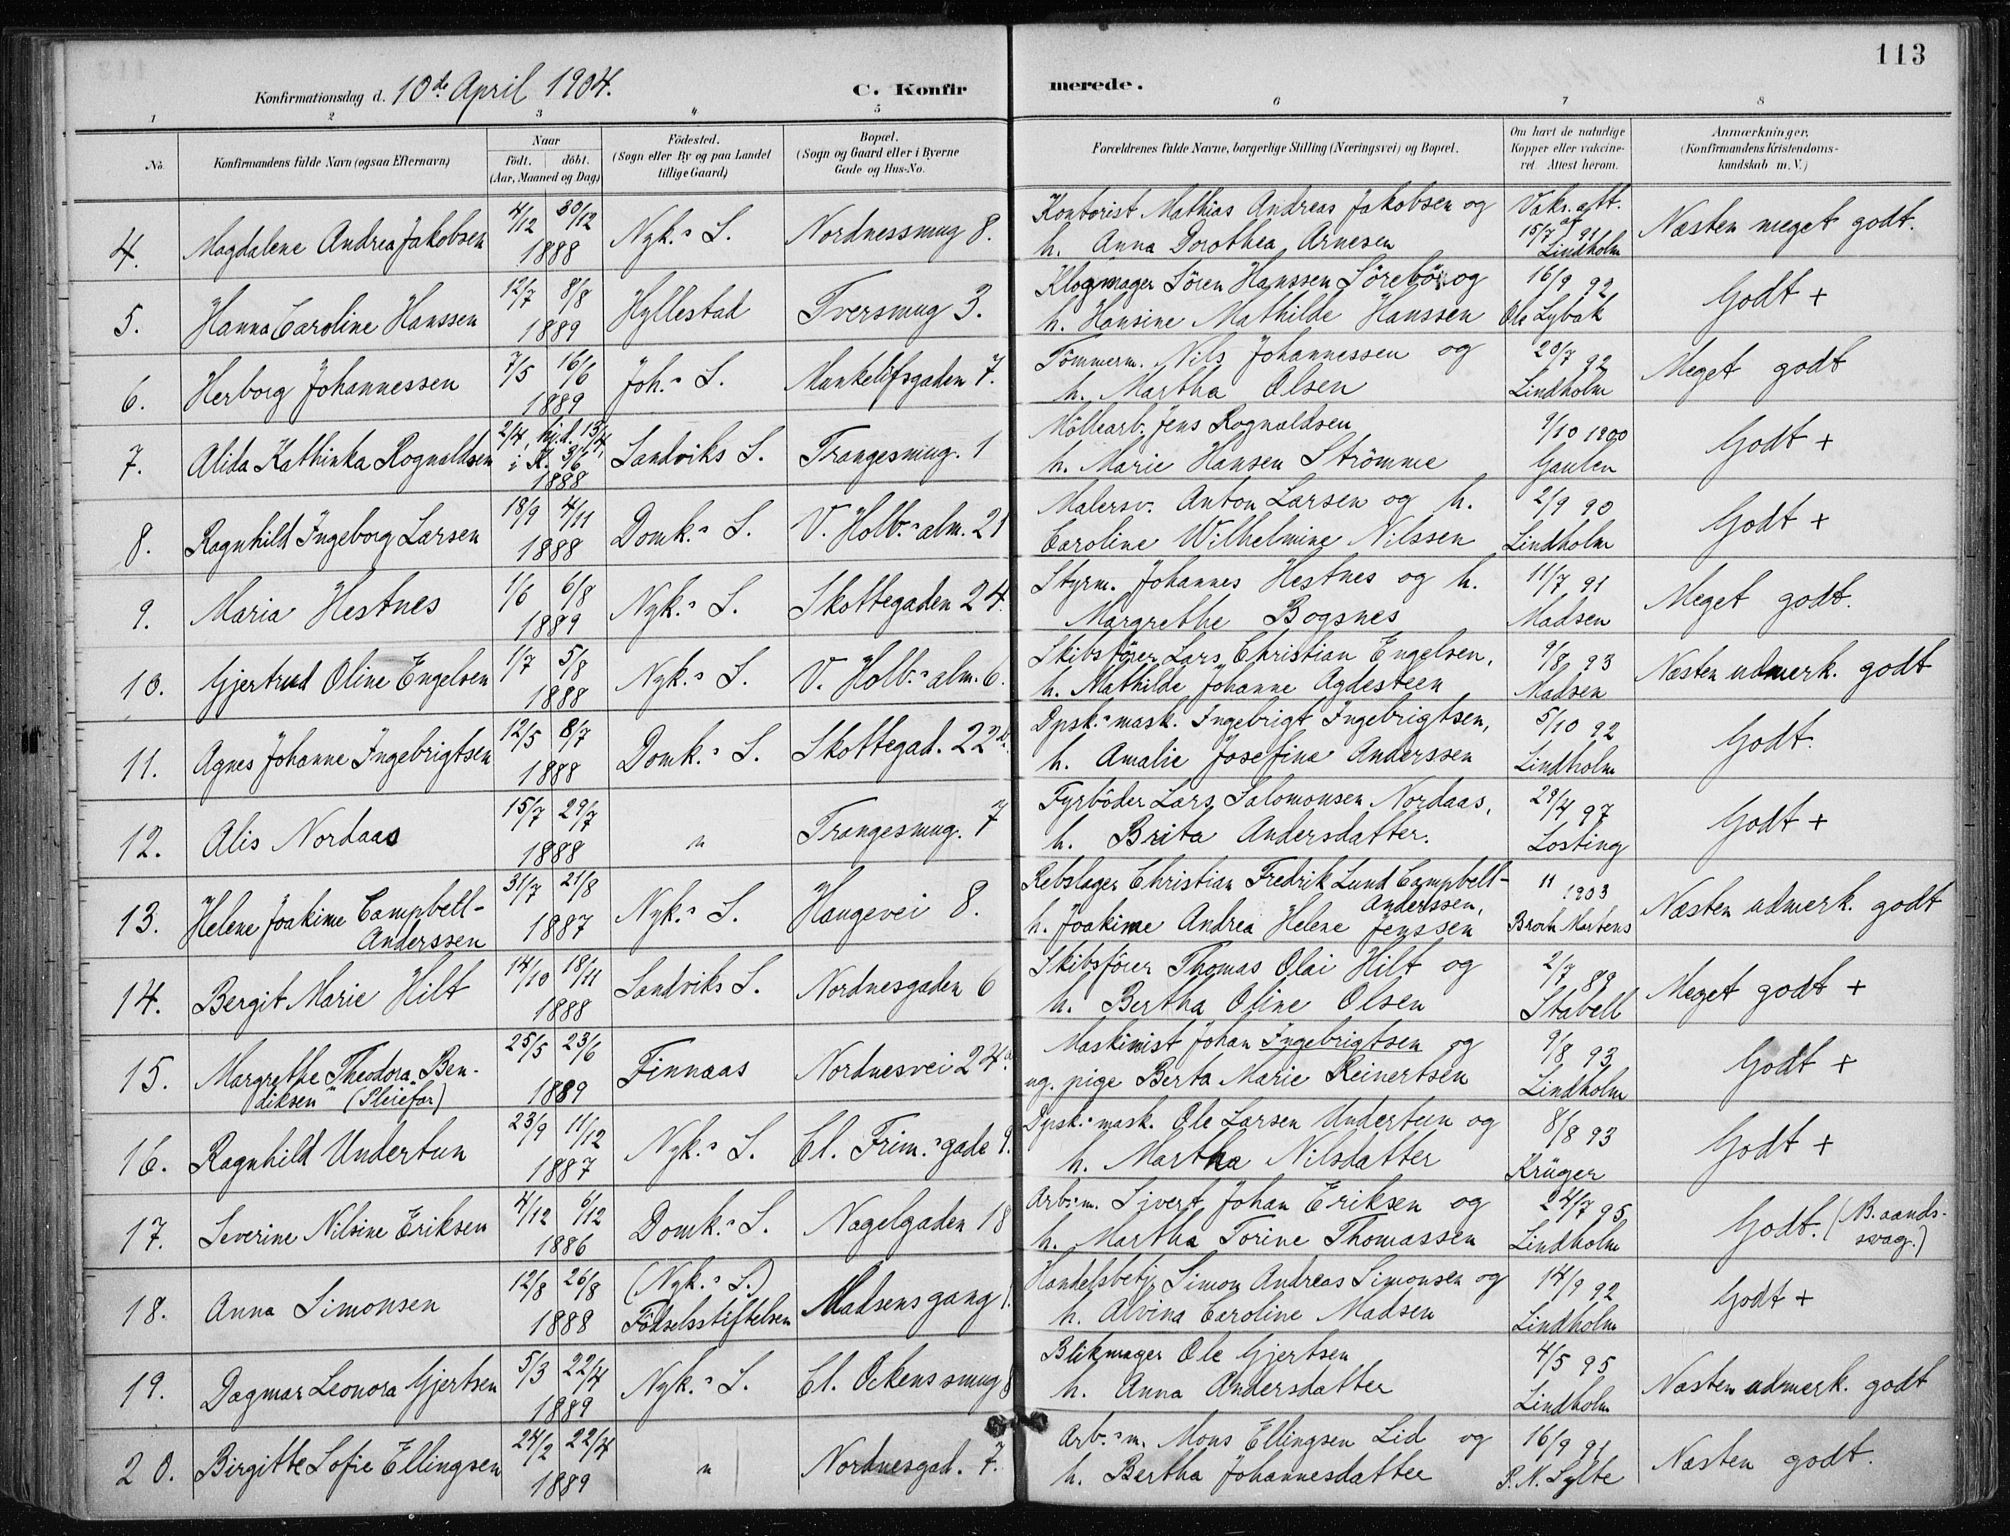 113
Konfirmationsdag d. 10de April 1904.
C. Konfirmerede.
1 2 3 4 5 6 7 8
No.
Konfirmandens fulde Navn (ogsaa Efternavn)
Naar
födt. döbt.
(Aar, Maaned og Dag)
Födested.
(Sogn eller By og paa Landet
tillige Gaard)
Bopæl.
(Sogn og Gaard eller i Byerne
Gade og Hus-No.
Forældrenes fulde Navne, borgerlige Stilling (Næringsvei) og Bopæl.
Om havt de naturlige
Kopper eller vakcine-
ret. Attest herom.
Anmærkninger.
(Konfirmandens Kristendoms-
kundskab m. V.)
4. Magdalene Andrea Jakobsen 4/12 30/12 1888 Nyk.s S. Nordnessmug 8.
Kontorist Mathias Andreas Jakobsen og
h. Anna Dorothea Arnesen
Vaks. att. af
15/7 91
Lindholm
Næsten meget godt.
5. Hanna Caroline Hanssen 12/7 8/8 1889 Hyllestad Tversmug 3.
Klogmager Sören Hanssen Sörebö og
h. Hansine Mathilde Hanssen
16/9 92
Ole Lybak
Godt +
6. Herborg Johannessen 7/5 16/6 1889 Joh.s S. Munkelifsgaden 7.
Tömmerm. Nils Johannessen og
h. Martha Olsen
20/7 92
Lindholm
Meget godt
7. Alida Kathinka Rognaldsen 2/4, hj.d. 13/4, i K. 3/6 1888 Sandviks S. Trangesmug. 1
Möllearb. Jens Rognaldsen
h. Marie Hansen Strömme
9/10 1900
Gaulen
Godt +
8. Ragnhild Ingeborg Larsen 18/9 4/11 1888 Domk.s S. V. Holb.s alm. 21
Malersv. Anton Larsen og h.
Caroline Wilhelmine Nilssen
2/9 90
Lindholm
Godt +
9. Maria Hestnes 1/6 6/8 1889 Nyk.s S. Skottegaden 24.
Styrm. Johannes Hestnes og h.
Margrethe Bogsnes
11/7 91
Madsen
Meget godt.
10. Gjertrud Oline Engelsen 1/7 5/8 1888 Nyk.s S. V. Holb.s alm. 6.
Skibsförer Lars Christian Engelsen,
h. Mathilde Johanne Agdesteen
9/8 93
Madsen
Næsten udmerk. godt
11. Agnes Johanne Ingebrigtsen 12/5 8/7 1888 Domk.s S. Skottegad. 22
Dpsk.s mask. Ingebrigt Ingebrigtsen,
h. Amalie Josefine Anderssen
5/10 92
Lindholm
Godt.
12. Alis Nordaas 15/7 29/7 1888 " Trangesmug. 7
Fyrböder Lars Salomonsen Nordaas,
h. Brita Andersdatter.
29/4 97
Losting
Godt +
13. Helene Joakime Campbell-
Anderssen 31/7 21/8 1887 Nyk.s S. Haugevei 8.
Rebslager Christian Fredrik Lund Campbell-
Anderssen,
h. Joakime Andrea Helene Jenssen
11 1903
Broch Martens
Næsten udmerk. godt
14. Bergit Marie Hilt 14/10 18/11 1888 Sandviks S. Nordnesgaden 6
Skibsförer Thomas Olai Hilt og
h. Bertha Oline Olsen
2/7 89
Stabell
Meget godt +
15. Margrethe Theodora Ben-
diksen (Pleiefar) 25/5 23/6 1889 Finnaas Nordnesvei 24a.
Maskinist Johan Ingebrigtsen og
ug. pige Berta Marie Reinertsen
9/8 93
Lindholm
Godt +
16. Ragnhild Undertun 23/9 11/12 1887 Nyk.s S. Cl. Frim.s gade 9.
Dpsk.s mask. Ole Larsen Undertun og
h. Martha Nilsdatter
8/8 93
Krüger
Godt +
17. Severine Nilsine Eriksen 4/12 6/12 1886 Domk.s S. Nagelgaden 18
Arb.s m. Sjvert Johan Eriksen og
h. Martha Torine Thomassen
24/7 95
Lindholm
Godt. (B. aands-
svag.)
18. Anna Simonsen 12/8 26/8 1888 (Nyk.s S.)
Födselsstiftelsen Madsens gang 1.
Handelsbetj. Simon Andreas Simonsen og
h. Alvina Caroline Madsen
14/9 92
Lindholm
Godt +
19. Dagmar Leonora Gjertsen 5/3 22/4 1889 Nyk.s S. Cl. Ockens smug 8
Blikmager Ole Gjertsen
h. Anna Andersdatter
4/5 95
Lindholm
Næsten udmerk. godt
20. Birgitte Sofie Ellingsen 24/2 22/4 1889 " Nordnesgad. 7.
Arb.s m. Mons Ellingsen Lid og
h. Bertha Johannesdatter
16/9 91
P. N. Sylte
Næsten godt.